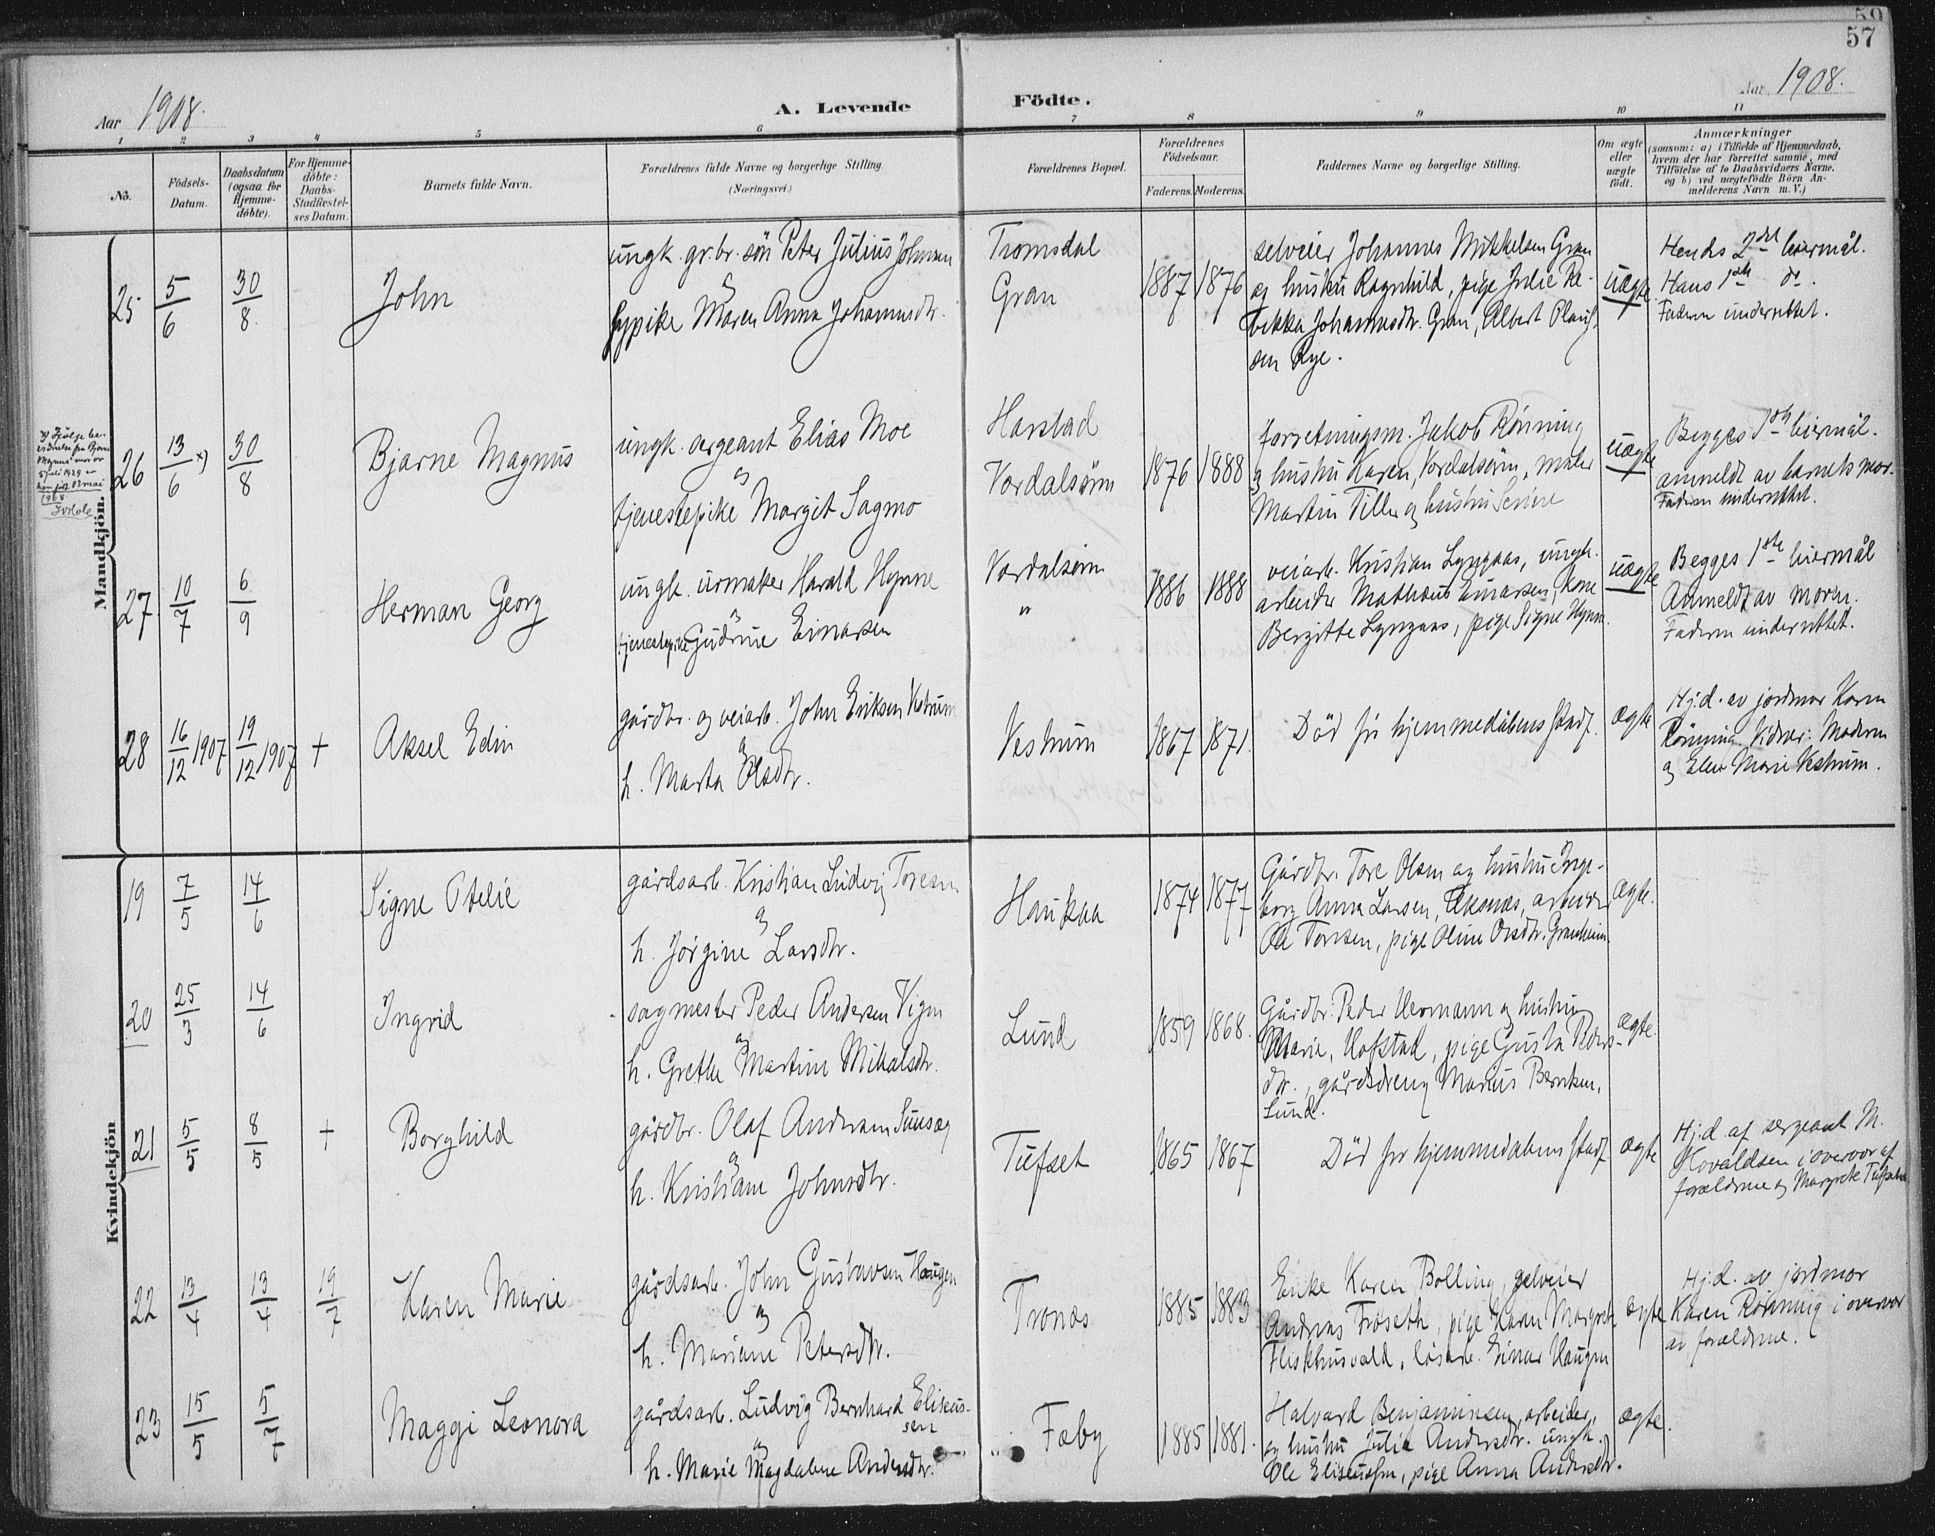 59
57
Aar 1908.
A. Levende Födte.
Aar 1908.
1 2 3 4 5 6 7 8 9 10 11
No.
Födsels-
Datum.
Daabsdatum
(ogsaa for
Hjemme-
döbte).
For Hjemme-
döbte:
Daabs-
Stadfæstel-
ses Datum.
Barnets fulde Navn.
Forældrenes fulde Navne og borgerlige Stilling.
(Næringsvei.)
Forældrenes Bopæl.
Forældrenes
Födselsaar.
Faderens. Moderens.
Faddernes Navne og borgerlige Stilling.
Om ægte
eller
uægte
födt.
Anmærkninger
(saasom: a) i Tilfælde af Hjemmedaab,
hvem der har forrettet samme, med
Tilföielse af to Daabsvidners Navne,
og b) ved uægtefödte Börn An-
melderens Navn m. V.)
Mandkjön.
25 5/6 30/8 John
ungk. gr.br. sön Peter Julius Johnsen
og
pike Maren Anna Johannesdtr.
Tromsdal
Gran
1887 1876
selveier Johannes Mikkelsen Gran
og hustru Ragnhild, pige Julie Re-
bekka Johannesdtr. Gran, Albert Olaus-
sen Rye.
uægte
Hendes 2det leiermål.
Hans 1ste do.
Faderen underrettet.
26 13/6 x) 30/8 Bjarne Magnus
ungk. sergeant Elias Moe
og
tjenestepike Margit Sagmo
Harstad
Værdalsøren
1876 1888
forretningsm. Jakob Rönning
og hustru Karen, Værdalsøren, maler
Martin Tiller og hustru Serine
uægte
Begges 1ste leiermål.
anmeldt av barnets mor.
Faderen underrettet.
27 10/7 6/9 Herman Georg
ungk. urmaker Harald Hynne
og
tjenestepike Gudrine Einarsen
Værdalsøren
"
1886 1888
veiarb. Kristian Lyngaas, ungk.
arbeider Mathæus Einarsen, kone
Bergitte Lyngaas, pige Signe Hynne.
uægte
Begges 1ste leiermål
Anmeldt av moren.
Faderen underrettet.
28 16/12 1907 19/12 1907 + Aksel Edin
gårdbr. og veiarb. John Eriksen Vestrum
og
h. Marta Olsdtr.
Vestrum
1867 1871.
Död för hjemmedåbens stadf.
ægte
Hj.d. av jordmor Karen
Rönning. Vidner: Moderen
og Elen Marie Vestrum.
Kvindekjön
19 7/5 14/6 Signe Otelie
gårdsarb. Kristian Ludvig Toresen
og
h. Jörgine Larsdtr.
Haukaa
1874 1877
Gårdbr. Tore Olsen og hustru Inge-
borg Anna Larsen, arbeider
Ole Toresen, pige Oline Olsdtr. Granheim.
ægte.
20 25/3 14/6 Ingrid
sagmester Peder Andersen Vigen
og
h. Grethe Martine Mikalsdtr.
Lund
1859 1868.
Gårdbr. Peder Hermann og hustru
Marie, Hofstad, pige Gusta Peders-
dtr., gårdsdreng Marius Berntsen,
Lund.
ægte.
21 5/5 8/5 + Borghild
gårdbr. Olaf Andersen Sunsæg
og
h. Kristiane Johnsdtr.
Tufset
1865 1867
Död för hjemmedabens stadf
ægte
Hj.d. af sergeant M.
Hovaldsen i overvær af
forældrene og Margrete
22 13/4 13/4 19/7 Karen Marie
gårdsarb. John Gustavsen Haugen
og
h. Mariane Petersdtr.
Tronæs
1885 1883
Enke Karen Bolling, selveier
Andreas Fröseth, pige Karen Margrete
Fleskhusvald, lösarb. Einar Haugen
ægte
Hj.d. av jordmor
Karen Rönning i overvær
av forældrene.
23 15/5 5/7 Maggi Leonora
gårdsarb. Ludvig Bernhard Eliseus-
sen
og
h. Marie Magdalene Andersdtr.
Fæby
1885 1881.
Halvard Benjaminsen, arbeider,
og hustru Julie Andersdtr. ungk.
Ole Eliseussen, pige Anna Andersdtr.
ægte.